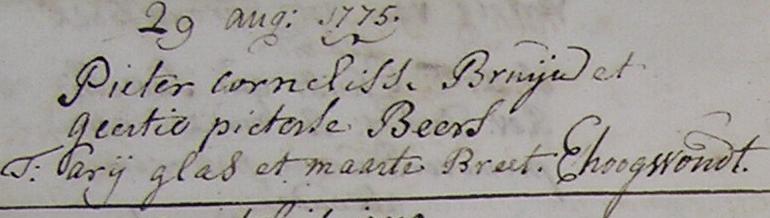 29 aug: 1775.
Pieter cornelisse Bruijn et
geertie pieterse Beers
T: arij glas et maarte Breet. Ehoogwoudt.